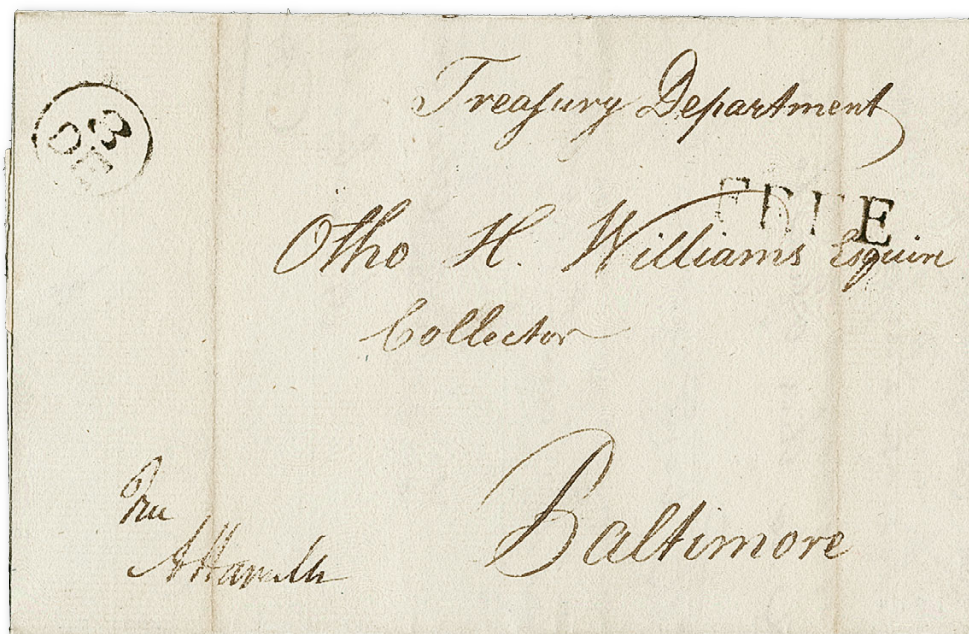 Treasury Department
3
DE
FREE
Otho H. Williams Esquire
Collector
Baltimore
free
A Hamilton